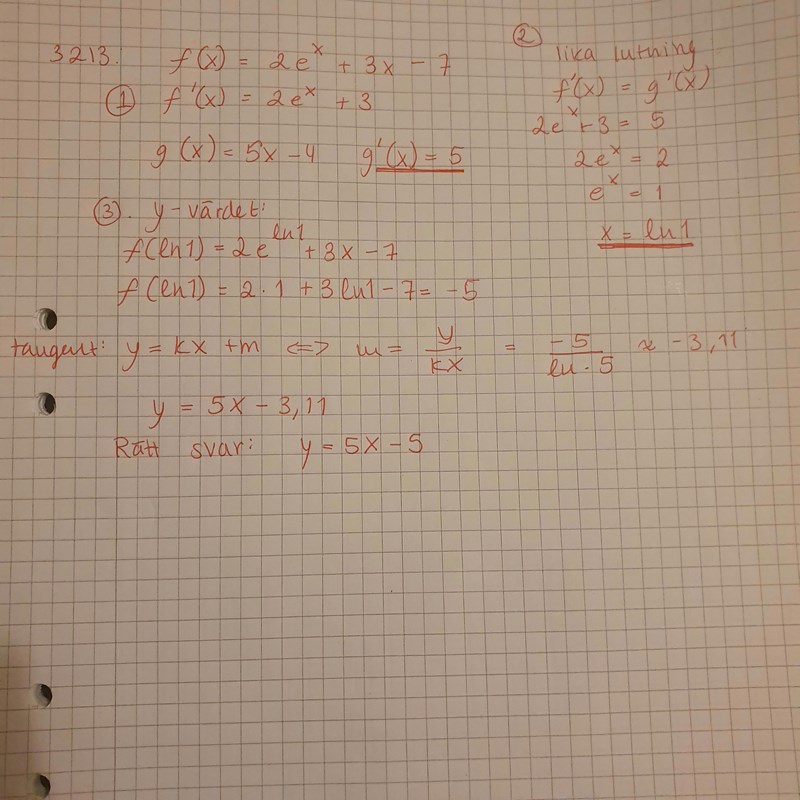 3213. f(x) = 2e^x + 3x - 7
① f'(x) = 2e^x + 3
g(x) = 5x - 4 g'(x) = 5
② lika lutning
f'(x) = g'(x)
2e^x + 3 = 5
2e^x = 2
e^x = 1
x = ln1
③. y-värdet:
f(ln1) = 2e^ln1 + 3x - 7
f(ln1) = 2·1 + 3ln1 - 7 = -5
tangent: y = kx + m <=> m = y/kx = -5/ln·5 ≈ -3,11
y = 5x - 3,11
Rätt svar: y = 5x - 5